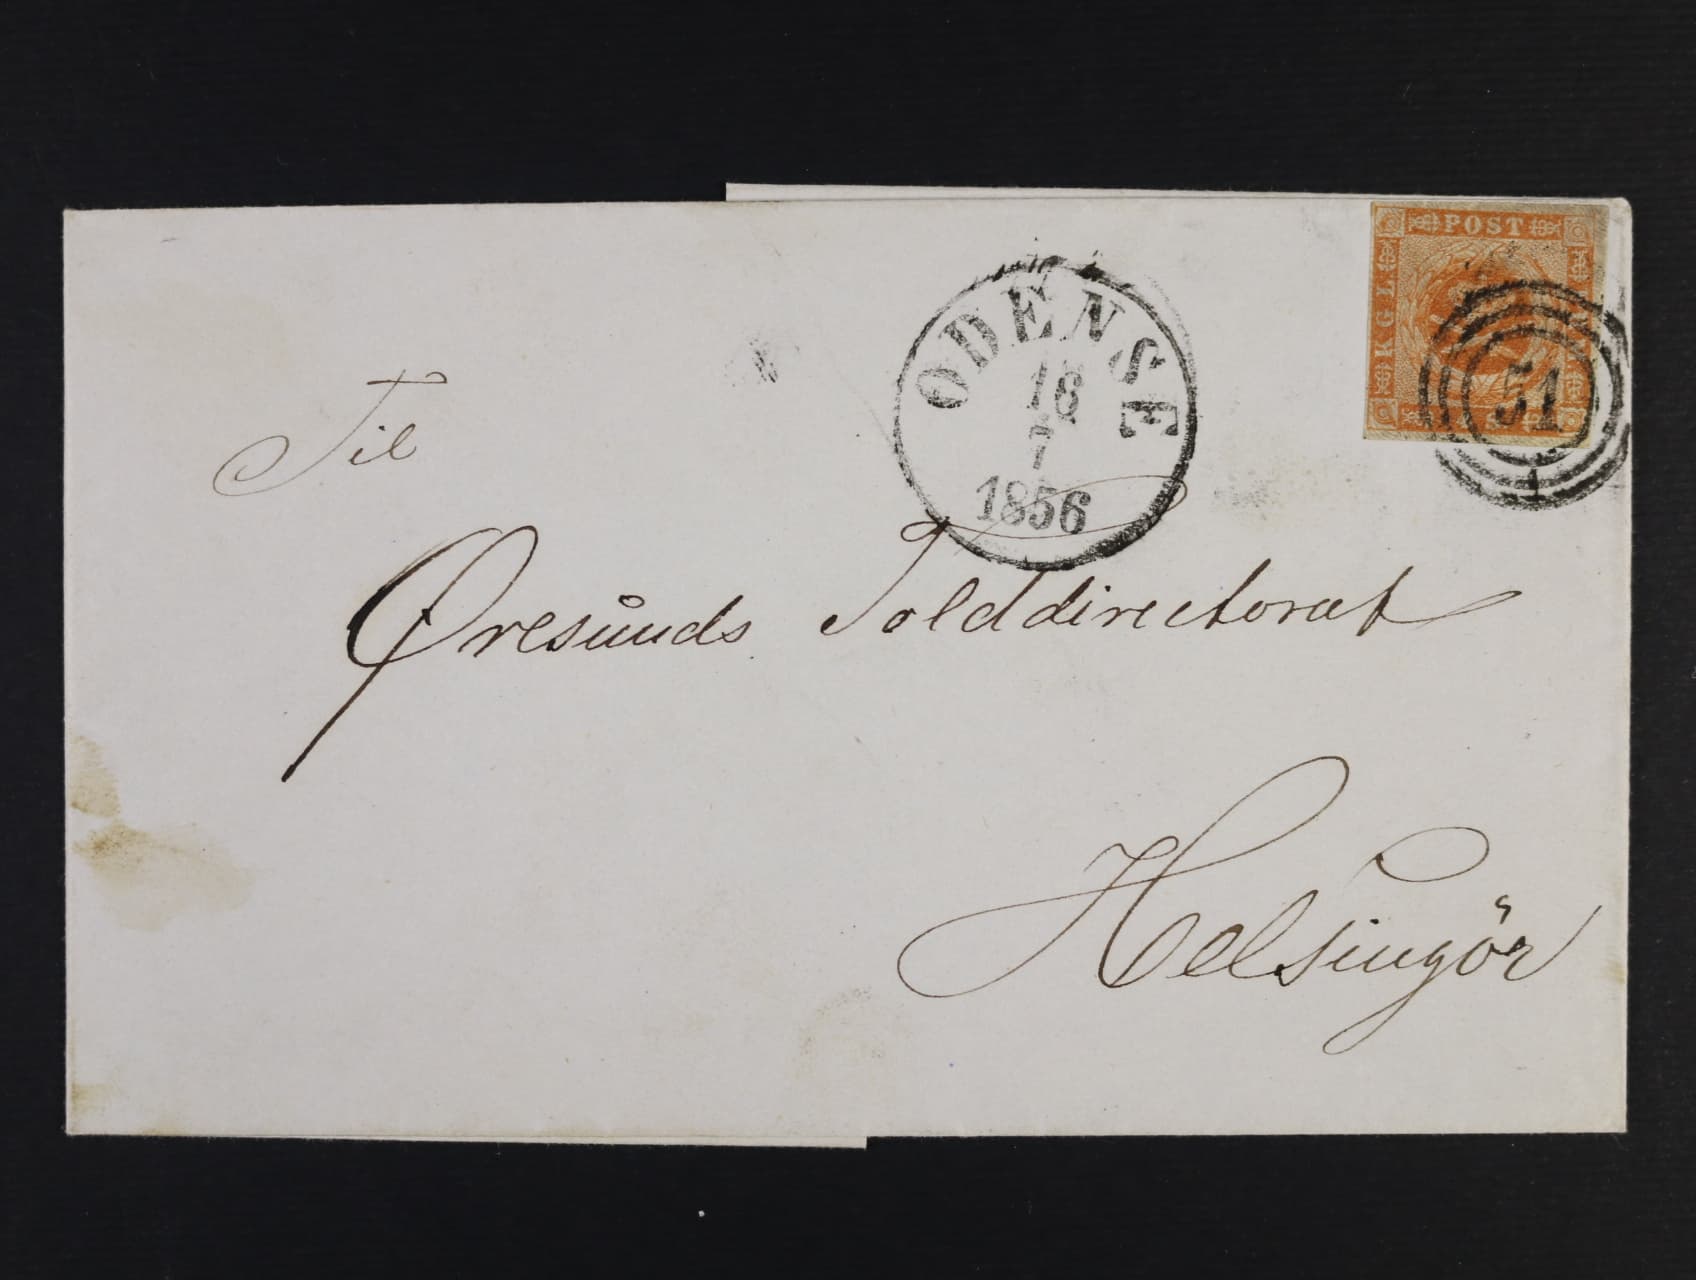 POST
KGL
51
ODENSE
18
7
1856
Til
Øresunds Tolddirectorat
Helsingör